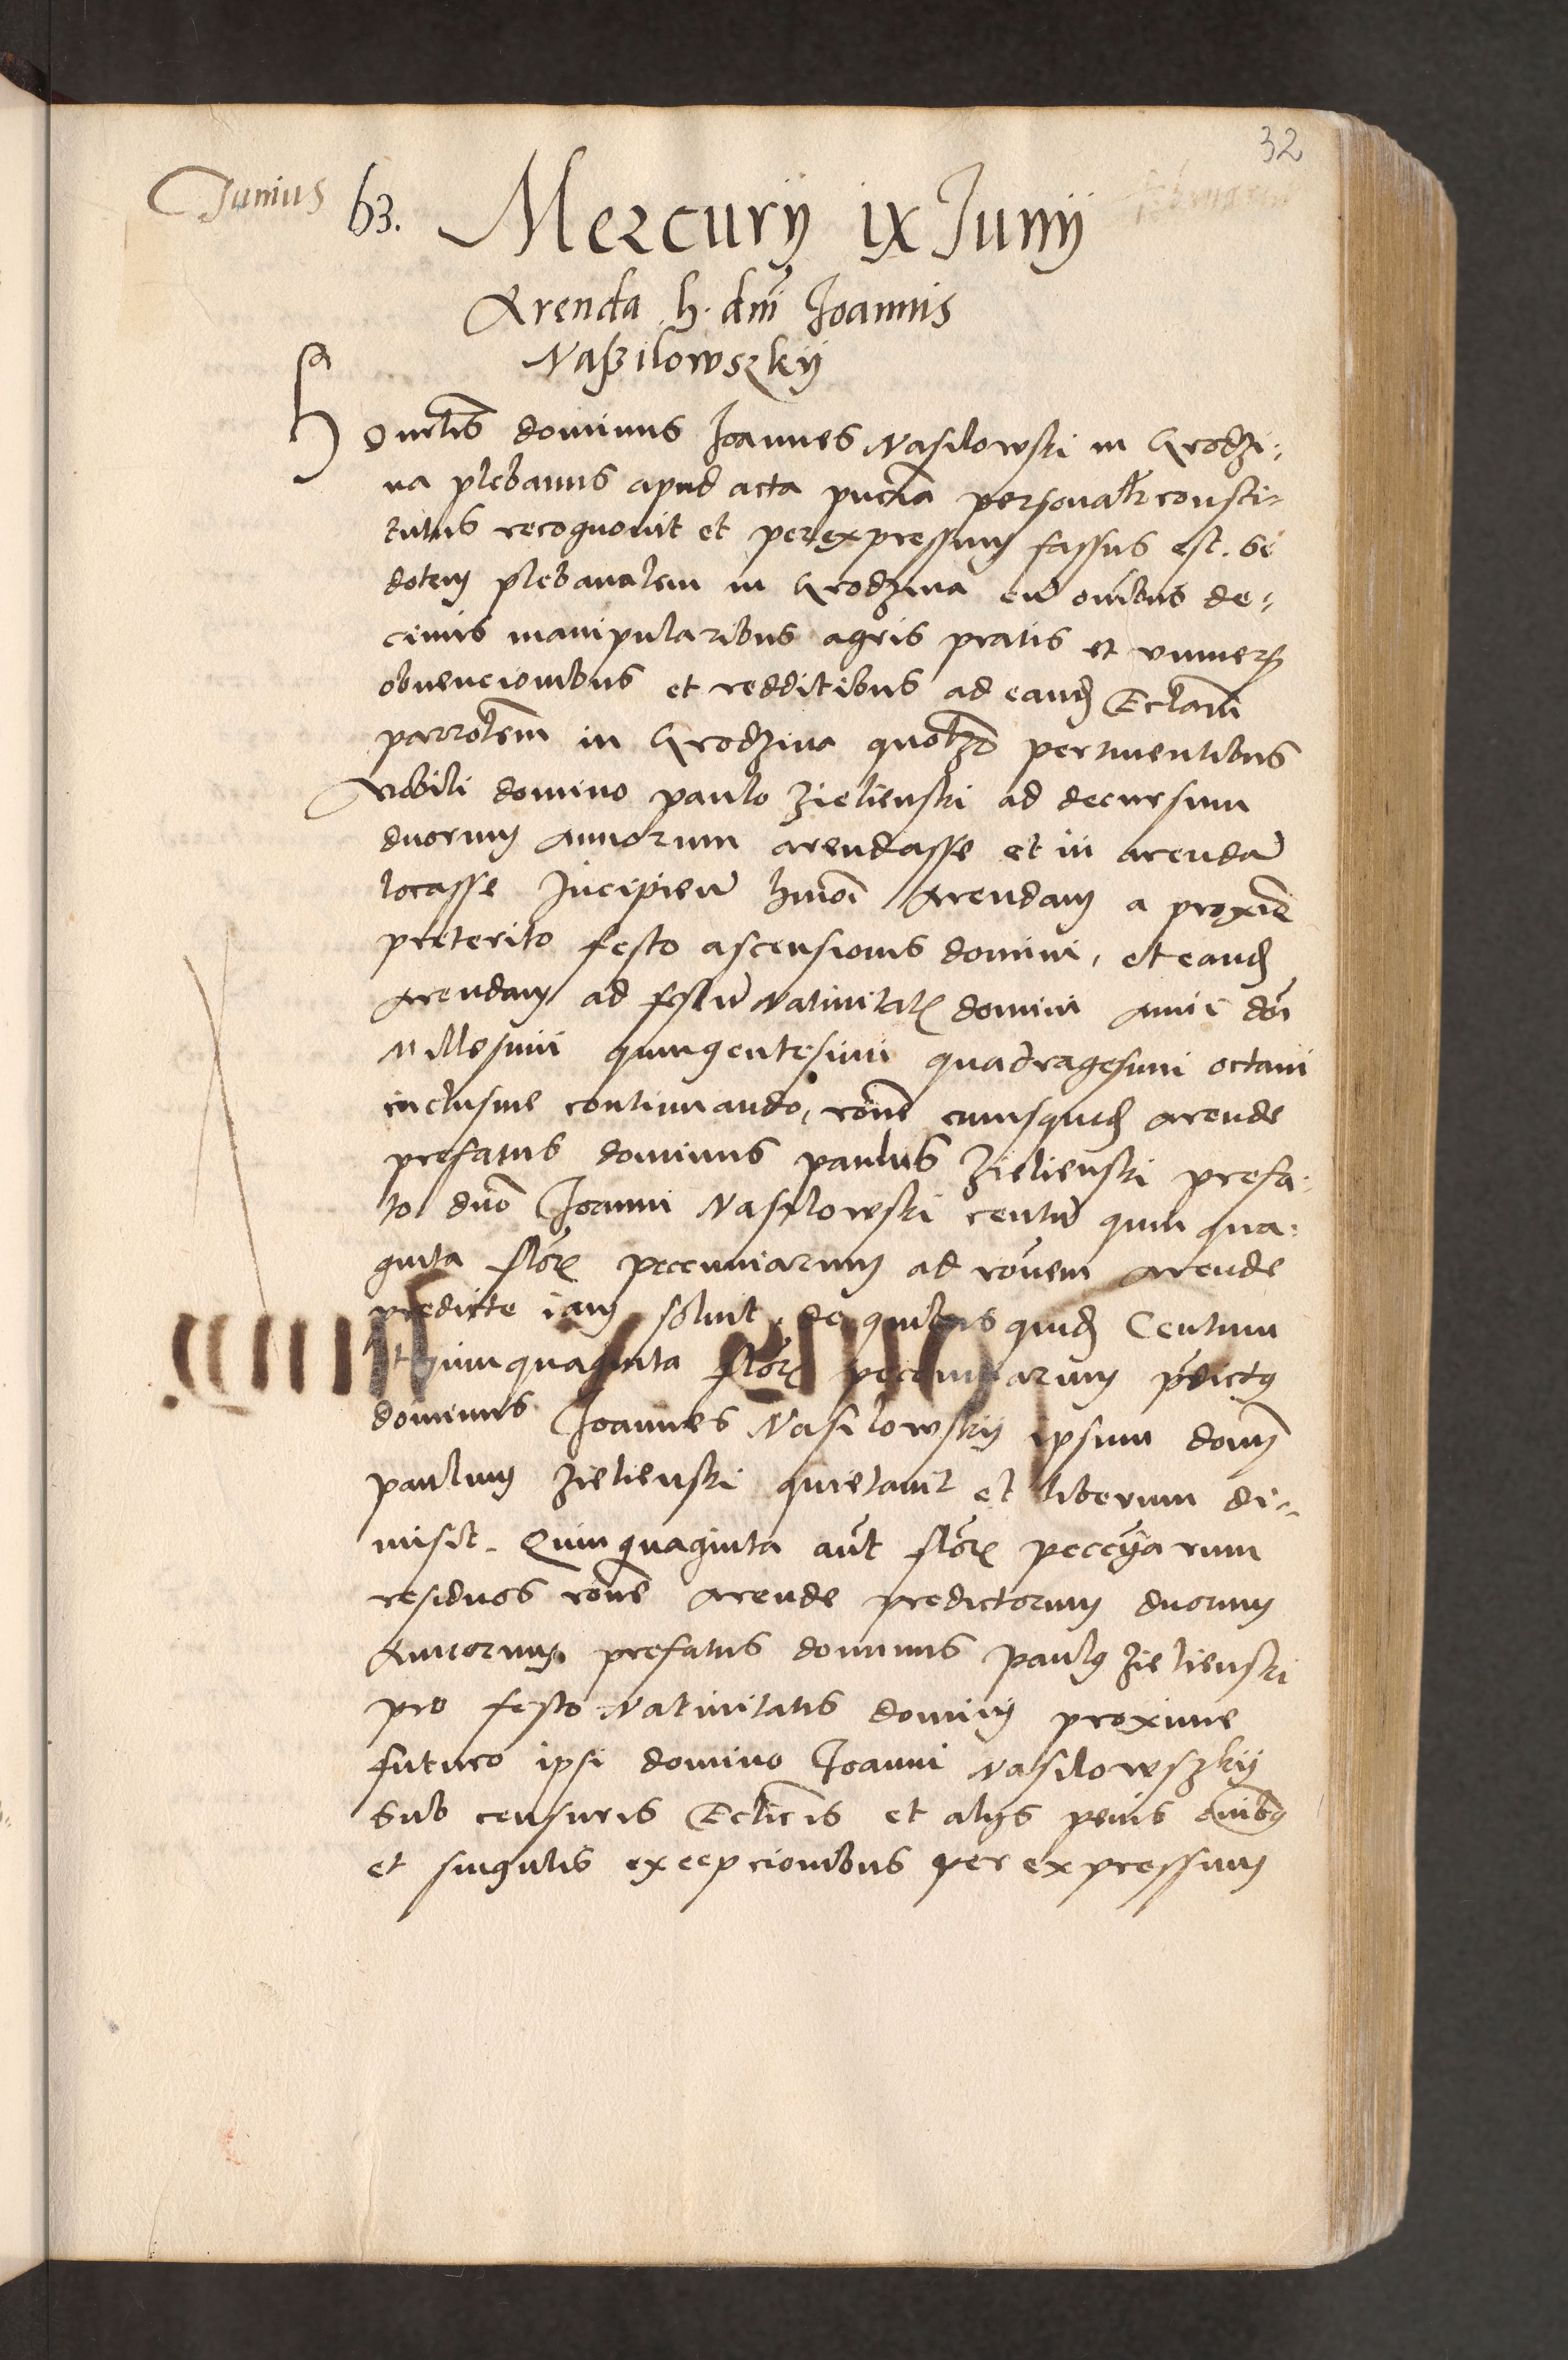 32
Junius
63. Mercurÿ ix Junÿ
Arenda h. dni Joannis
Naßilowszkÿ
Honrlis dominus Joannes Nasilowski in Grodzi-
na plebanus apud acta pntia personalr consti-
tutus recognovit et per expressum fassus est. se
dotem plebanalem in Grodzina cu omibus de-
cimis manipularibus agris pratis et univers
obvencionibus et redditibus ad eand Ecclam
parrolem in Grodzina quolzd pertinentibus
Nobili domino paulo Zielienski ad decursum
duorum annorum arendasse et in arenda
locasse Incipien hmoi Arendam a proxie
preterito festo ascensionis domini, et eand
Arendam ad festu Nativitatis domini anni dni
Millesimi quingentesimi quadragesimi octavi
inclusive continuando, rone cuiusquid arende
prefatus dominus paulus Zielienski prefa-
to dno Joanni Nasilowski centu quinqua-
ginta flor pecuniarum ad ronem arende
predicte iam solvit, de quibus quid Centum
et quinquaginta flor pecuniarum pdict9
dominus Joannes Nasilowskÿ ipsum domm
paulum Zielienski quietavit et liberum di-
misit. Quinquaginta aut flor pecc9arum
residuos rone arende predictorum duorum
Annorum prefatus dominus paul9 Zielienski
pro festo Nativitatis domini proxime
futuro ipsi domino Joanni Nasilowszkÿ
sub censuris Eccliicis et alÿs penis omib9
et singulis excepcionibus per expressum